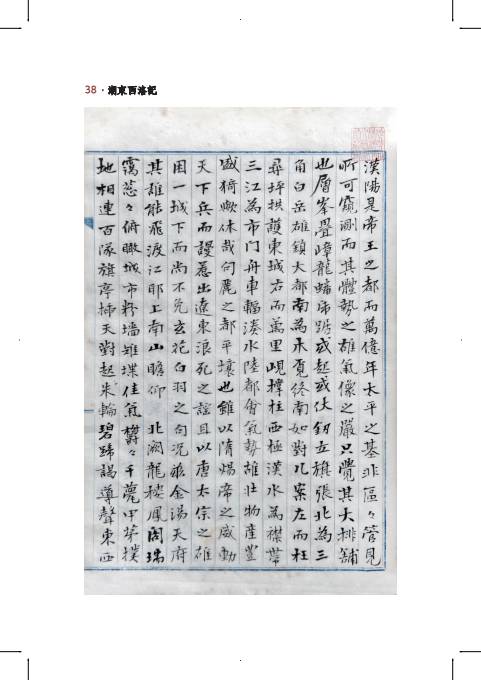 38 · 湖東西洛記
漢陽是帝王之都而萬億年太平之基非區々管見
所可窺測而其體勢之雄氣像之嚴只覺其大排鋪
也層峯疊嶂龍蟠虎踞或起或伏釰立旗張北為三
角白岳雄鎮大都南為木覓終南如對几案左而枉
尋坪拱護東城右而萬里峴撑柱西極漢水為襟帶
三江為市門舟車輻湊水陸都會氣勢雄壯物產豐
盛猗歟休哉句麗之都平壤也雖以隋煬帝之威動
天下兵而謾惹出遼東浪死之謠且以唐太宗之雄
困一城下而尚不免玄花白羽之句況玆金湯天府
其誰能飛渡江耶上南山瞻仰 北闕龍樓鳳閣瑞
靄葱々俯瞰城市粉墻雉堞佳氣欝々千甍甲第撲
地相連百隊旗亭揷天對起朱輪碧蹄謁導聲東西